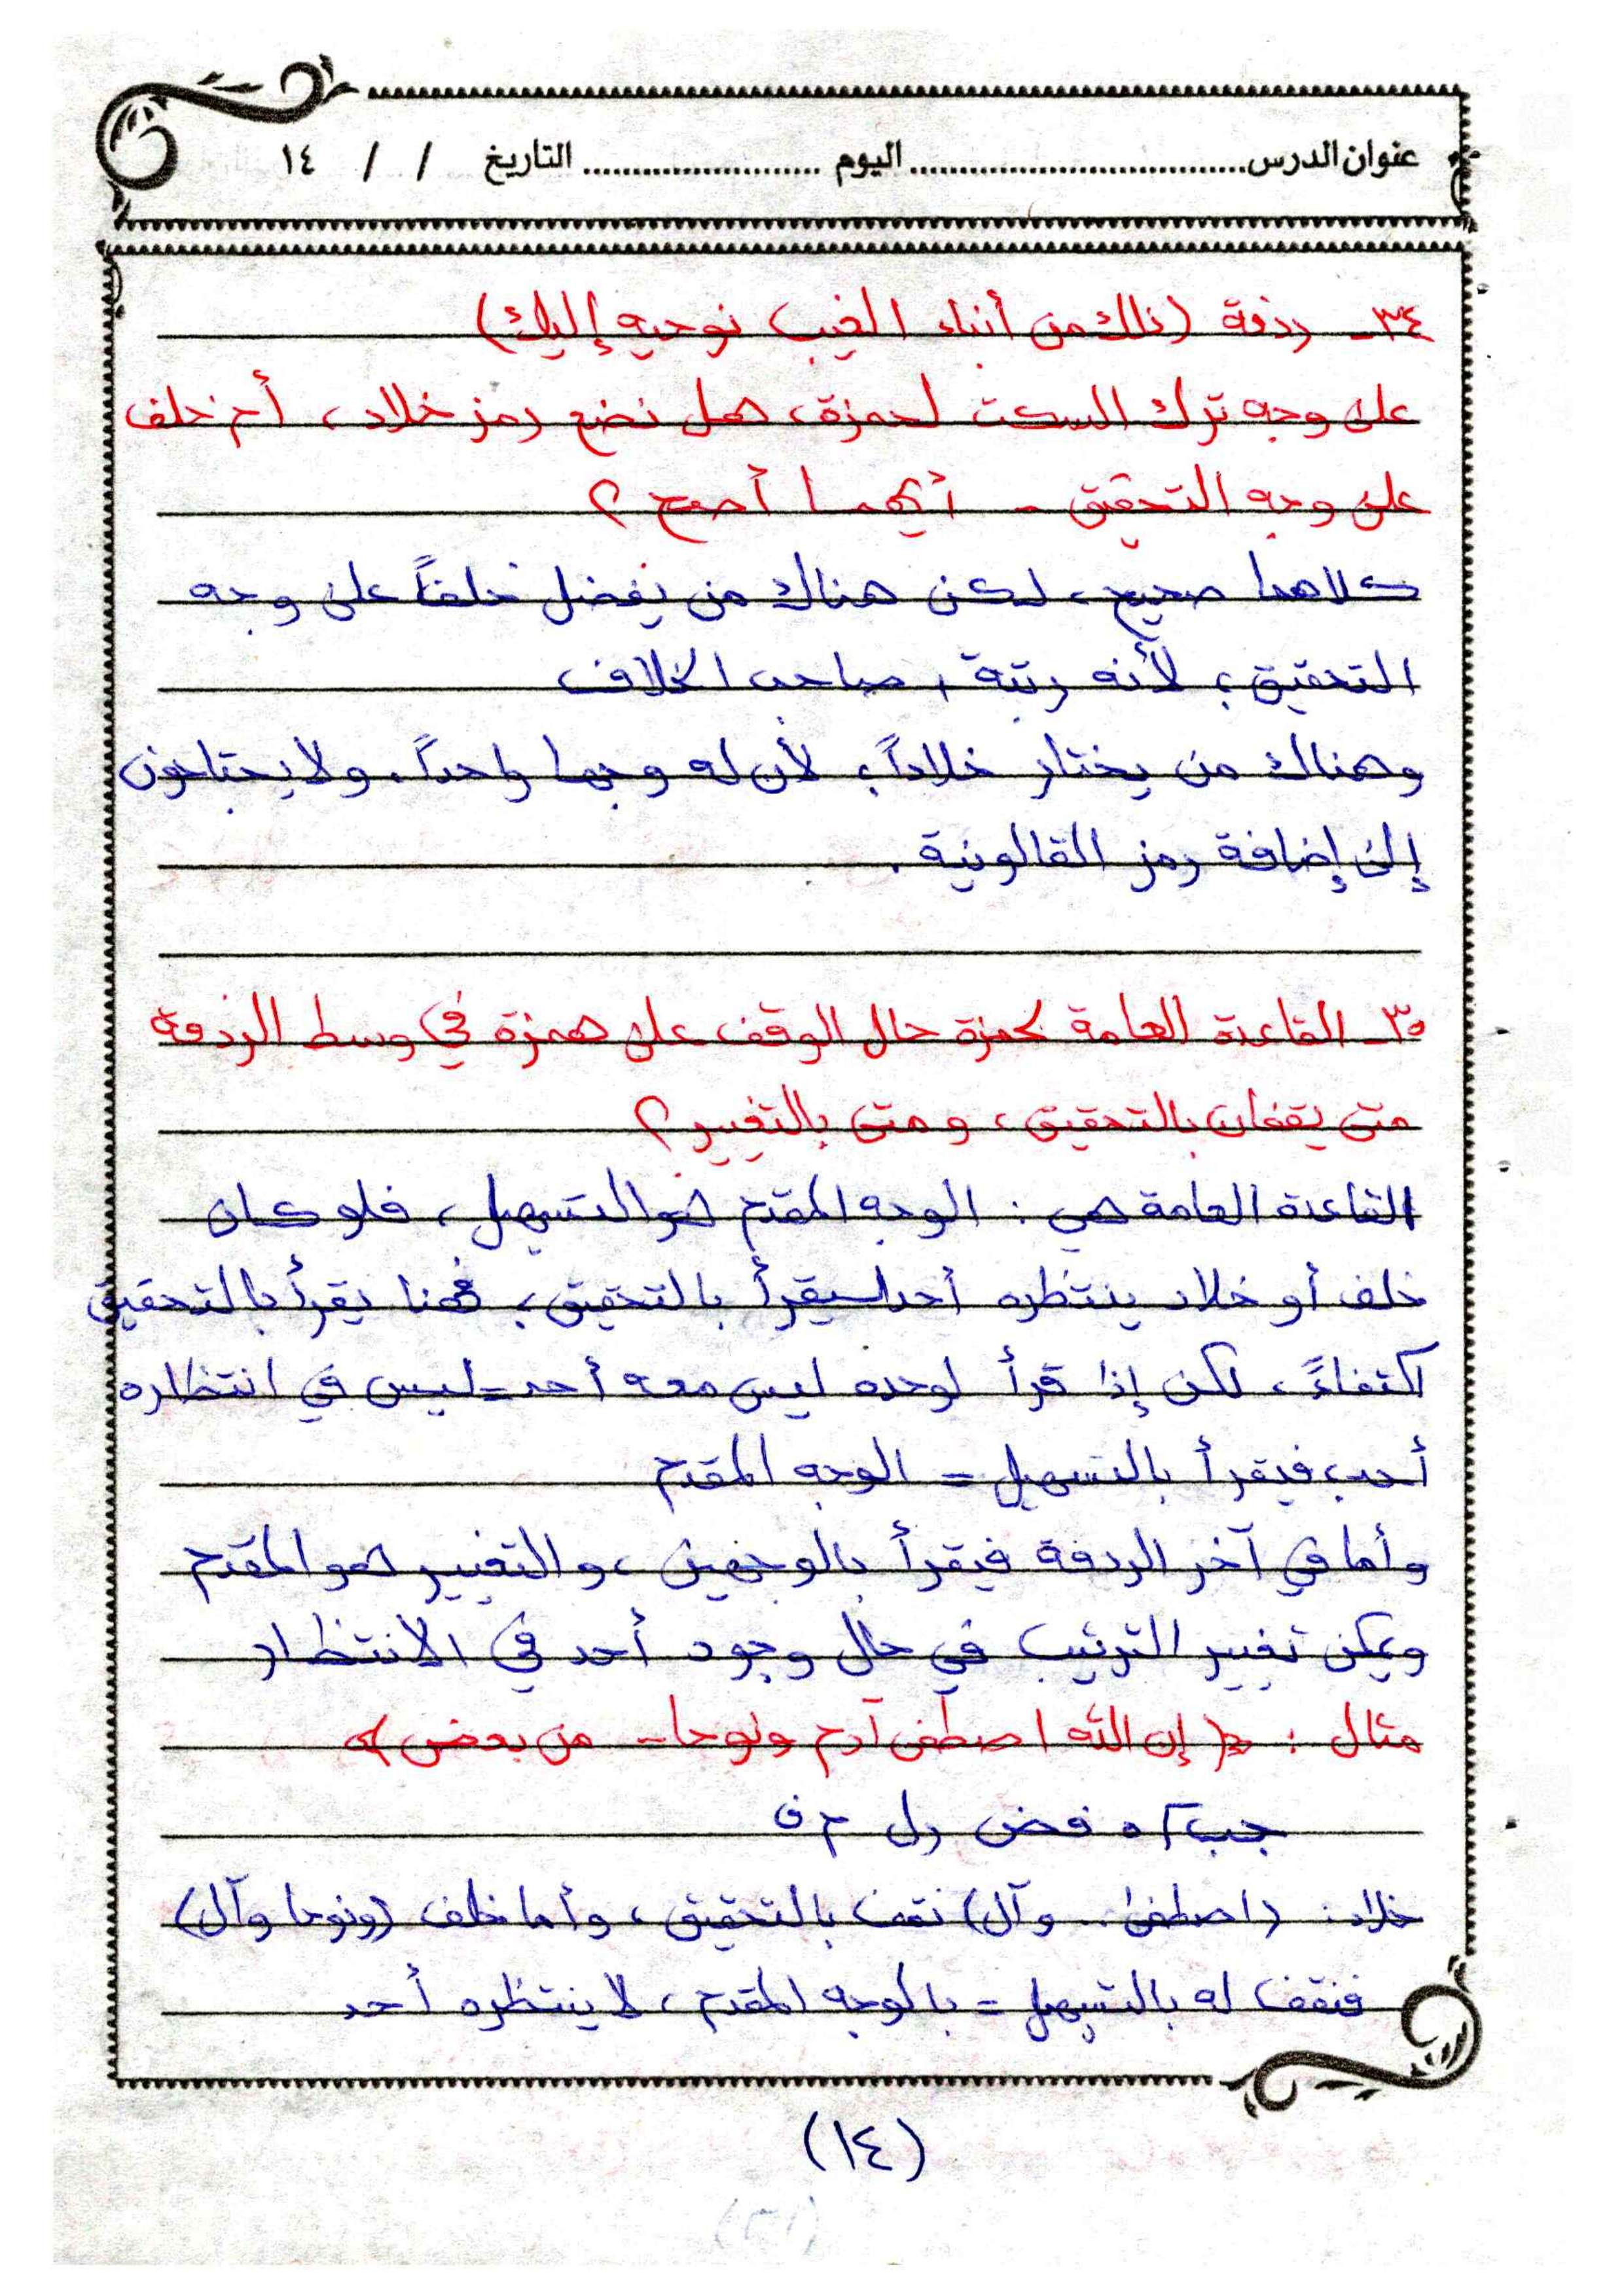 عنوان الدرس............................ اليوم ........................ التاريخ / / ١٤
٣٤- ردفة (ذلك من أنباء الغيب نوحيه إليك)
على وجه ترك السكت لحمزة، هل نضع رمز خلاد، أم خلف
على وجه التحقيق - أيهما أصح؟
كلاهما صحيح، لكن هناك من يفضل خلفاً على وجه
التحقيق؛ لأنه رتبة، صاحب الخلاف
وهناك من يختار خلاداً؛ لأن له وجها واحداً، ولا يحتاجون
إلى إضافة رمز القالونية.
٣٥- القاعدة العامة لحمزة حال الوقف على همزة في وسط الردفة
متى يقفان بالتحقيق، ومتى بالتغيير؟
القاعدة العامة هي: الوجه المقدم هو التسهيل، فلو كان
خلف أو خلاد ينتظره أحد سيقرأ بالتحقيق، فهنا يقرأ بالتحقيق
اكتفاءً، لكن إذا قرأ لوحده ليس معه أحد=ليس في انتظاره
أحد، فيقرأ بالتسهيل = الوجه المقدم
وأما في آخر الردفة فيقرأ بالوجهين، والتغيير هو المقدم
ويمكن تغيير الترتيب في حال وجود أحد في الانتظار
مثال: ﴿إن الله اصطفى آدم ونوحا -- من بعض﴾
فضق رل م ف
خلاد: (اصطفى.. وآل) نقف بالتحقيق، وأما خلف (ونوحا وآل)
فنقف له بالتسهيل = بالوجه المقدم، لا ينتظره أحد
(١٤)